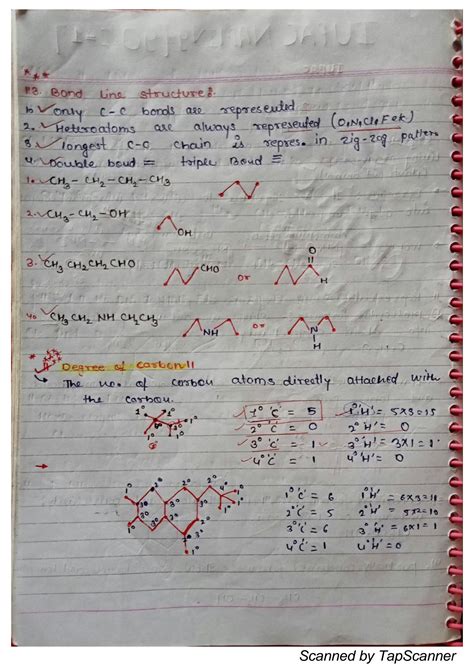 *** 
#3. Bond line structure:
1. only C-C bonds are represented.
2. Heteroatoms are always represented (O,N,Cl,S,F etc)
3. longest C-C chain is repres. in zig-zag pattern
4. Double bond = triple Bond ≡
1. CH3-CH2-CH2-CH3
2. CH3-CH2-OH
OH
3. CH3CH2CH2CHO
CHO or O H
4. CH3CH2 NH CH2CH3
NH or N H
Degree of carbon!!
The no. of carbon atoms directly attached with
the carbon.
1° 'C' = 5 1°'H' = 5×3=15
2° 'C' = 0 2° 'H' = 0
3° 'C' = 1 3° 'H' = 3×1=1
4° 'C' = 1 4° 'H' = 0
1° 'C' = 6 1° 'H' = 6×3=18
2° 'C' = 5 2° 'H' = 5×2=10
3° 'C' = 6 3° 'H' = 6×1=1
4° 'C' = 1 4° 'H' = 0
Scanned by TapScanner